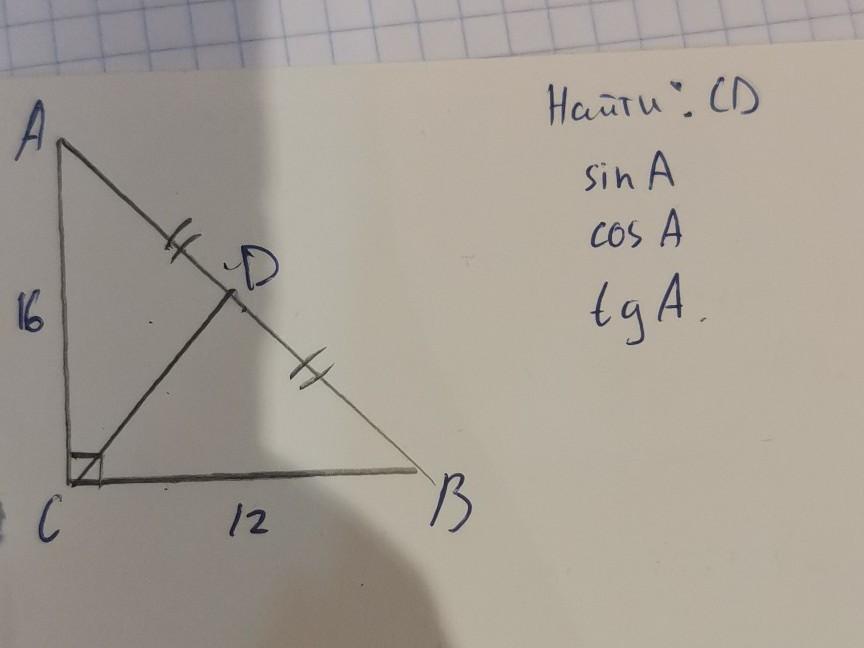 A
Найти: CD
sin A
cos A
tg A.
D
16
C
12
B